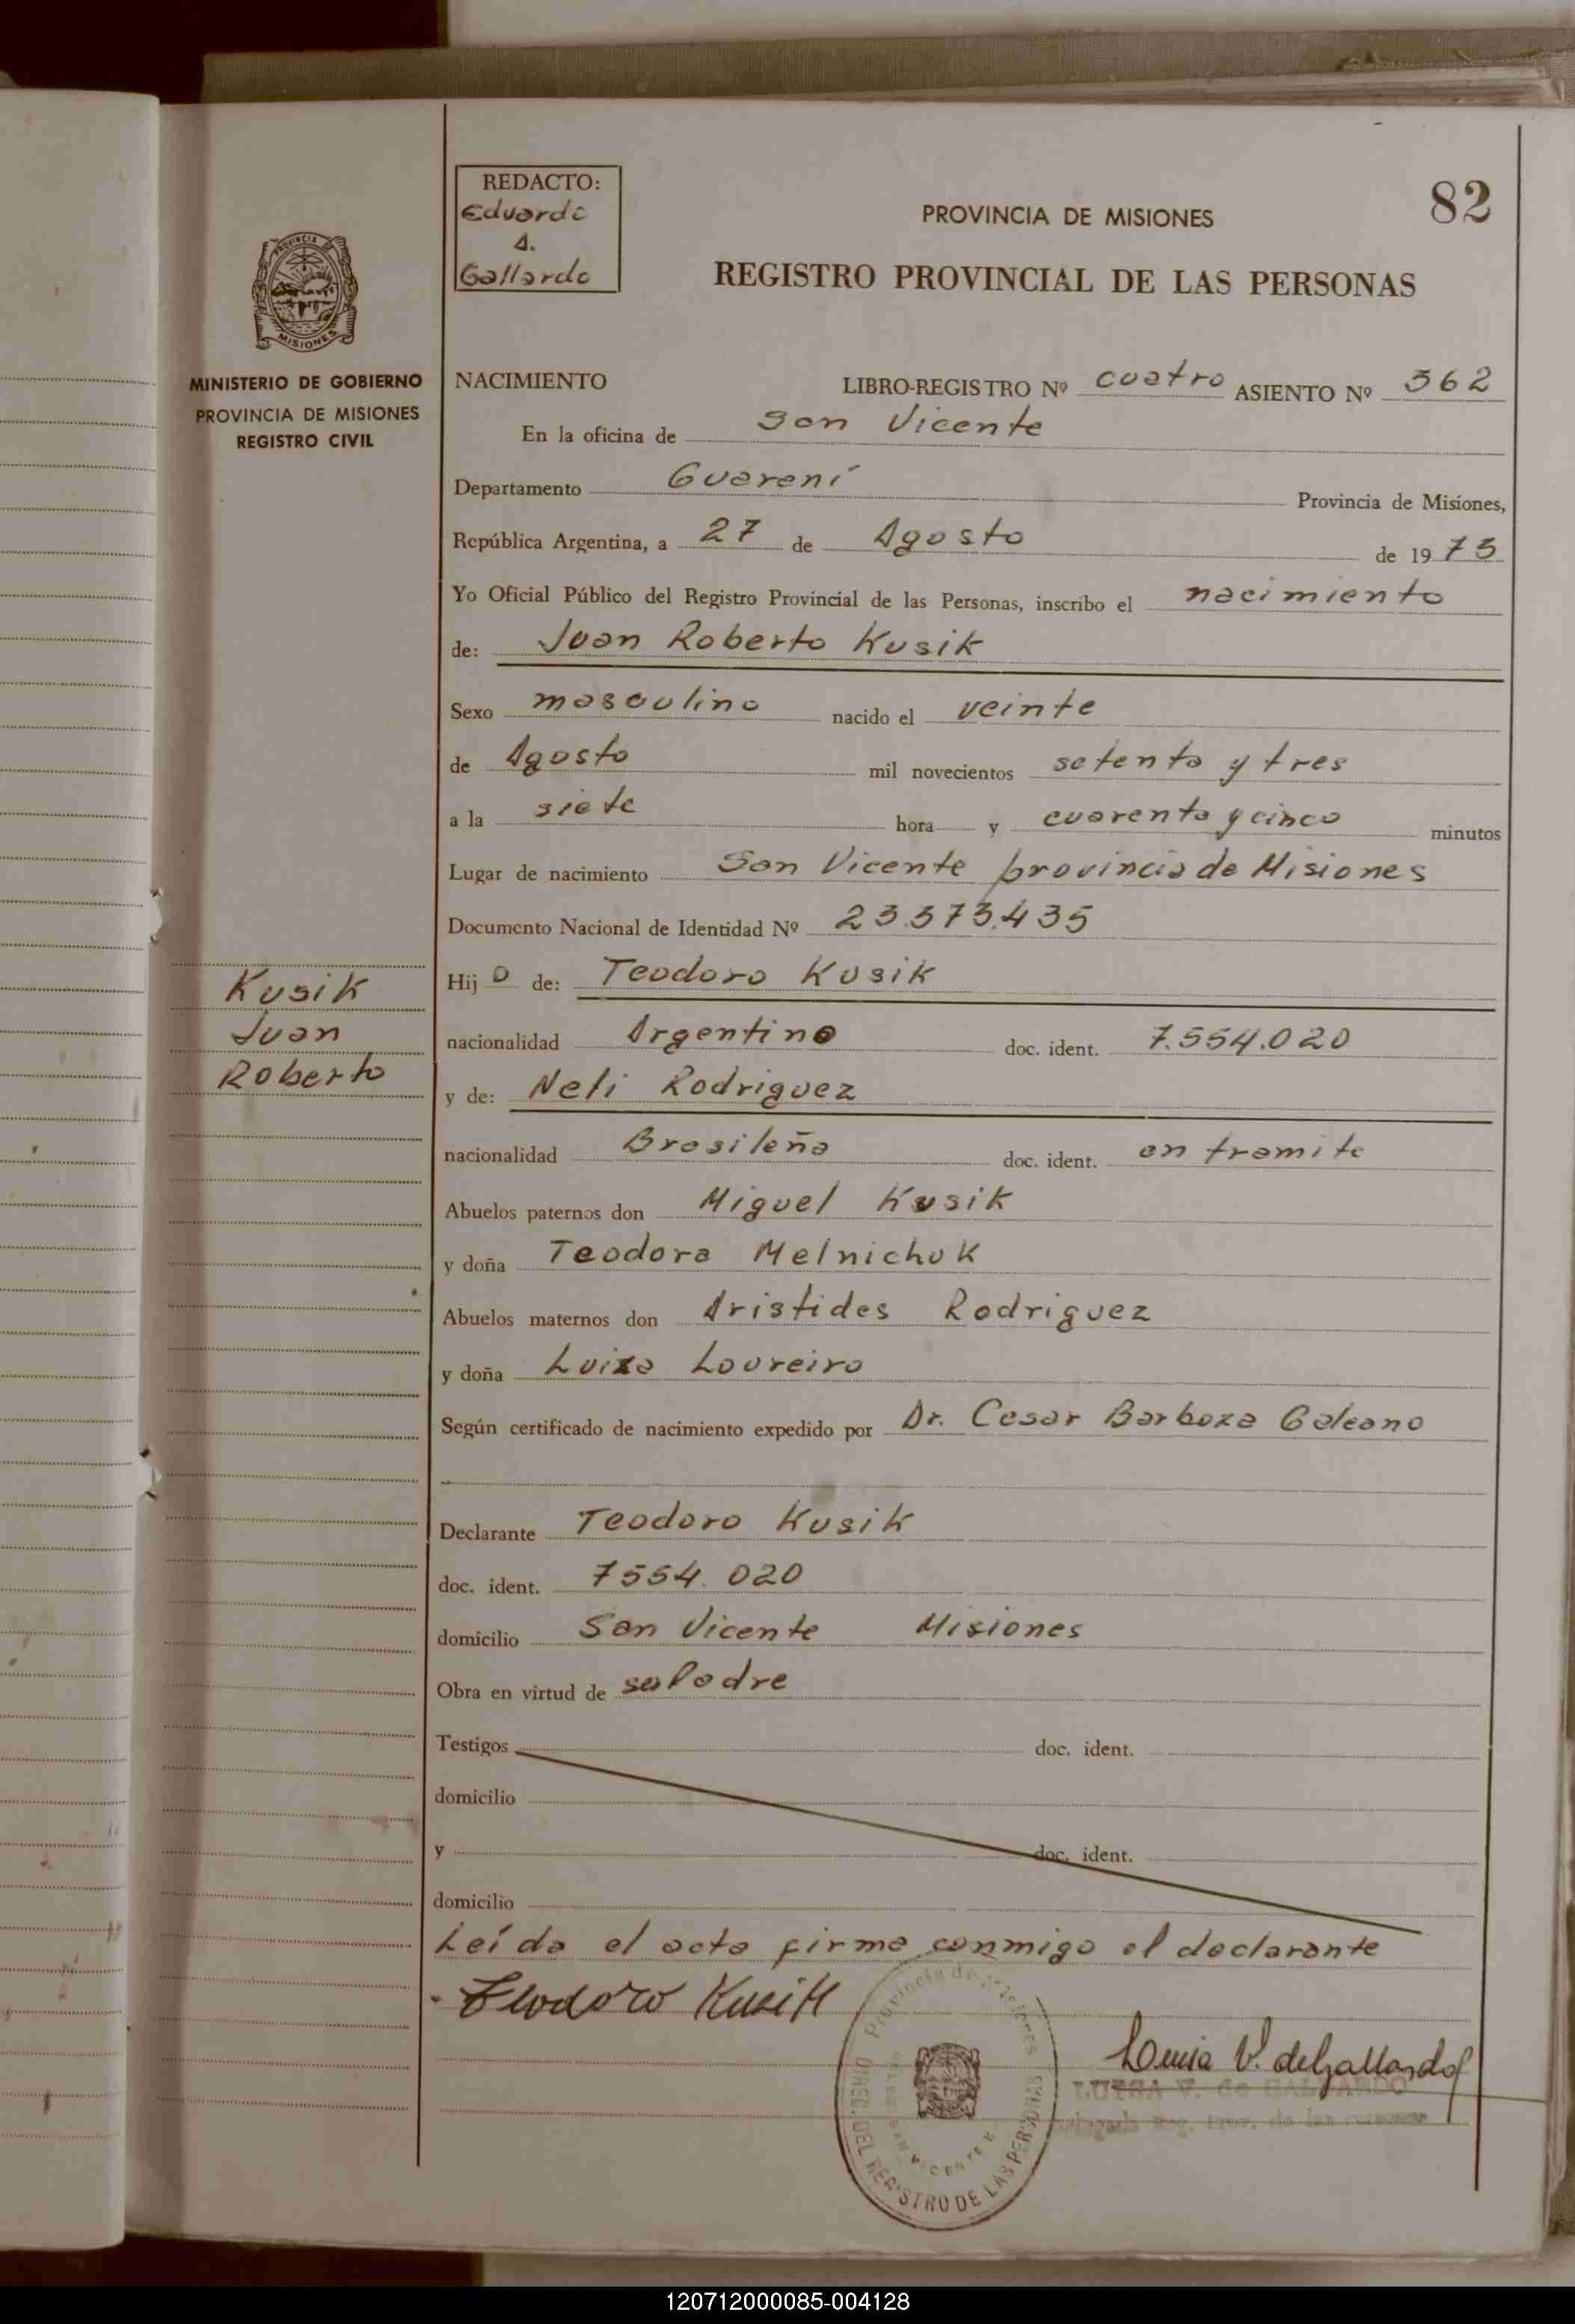 REDACTO:
Eduardo
A.
Gallardo
82
PROVINCIA DE MISIONES
REGISTRO PROVINCIAL DE LAS PERSONAS
PROVINCIA DE
MISIONES
MINISTERIO DE GOBIERNO
PROVINCIA DE MISIONES
REGISTRO CIVIL
NACIMIENTO LIBRO-REGISTRO Nº cuatro ASIENTO Nº 362
En la oficina de San Vicente
Departamento Guaraní Provincia de Misiones,
República Argentina, a 27 de Agosto de 1973
Yo Oficial Público del Registro Provincial de las Personas, inscribo el nacimiento
de: Juan Roberto Kusik
Sexo masculino nacido el veinte
de Agosto mil novecientos setenta y tres
a la siete hora y cuarenta y cinco minutos
Lugar de nacimiento San Vicente provincia de Misiones
Documento Nacional de Identidad Nº 23.373.435
Hijo de: Teodoro Kusik
nacionalidad Argentino doc. ident. 7.554.020
y de: Neli Rodriguez
nacionalidad Brasileña doc. ident. en tramite
Abuelos paternos don Miguel Kusik
y doña Teodora Melnichuk
Abuelos maternos don Aristides Rodriguez
y doña Luiza Loureiro
Según certificado de nacimiento expedido por Dr. Cesar Barboza Galeano
Declarante Teodoro Kusik
doc. ident. 7554.020
domicilio San Vicente Misiones
Obra en virtud de su Padre
Testigos doc. ident.
domicilio
y doc. ident.
domicilio
Leída el acta firma conmigo el declarante
Teodoro Kusik
Kusik
Juan
Roberto
Provincia de Misiones
DIREC. DEL REGISTRO DE LAS PERSONAS
SAN VICENTE
Luisa V. de Gallardo
LUISA V. de GALLARDO
Delegada Reg. Prov. de las personas
120712000085-004128